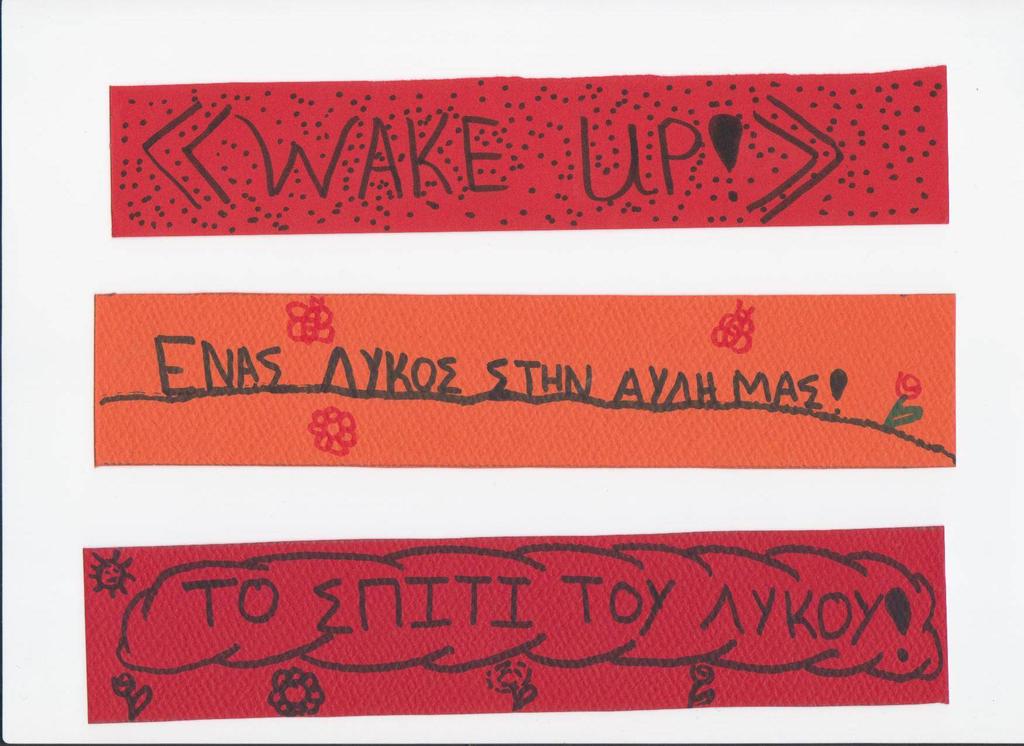 <<WAKE UP!>>
ΕΝΑΣ ΛΥΚΟΣ ΣΤΗΝ ΑΥΛΗ ΜΑΣ!
ΤΟ ΣΠΙΤΙ ΤΟΥ ΛΥΚΟΥ!